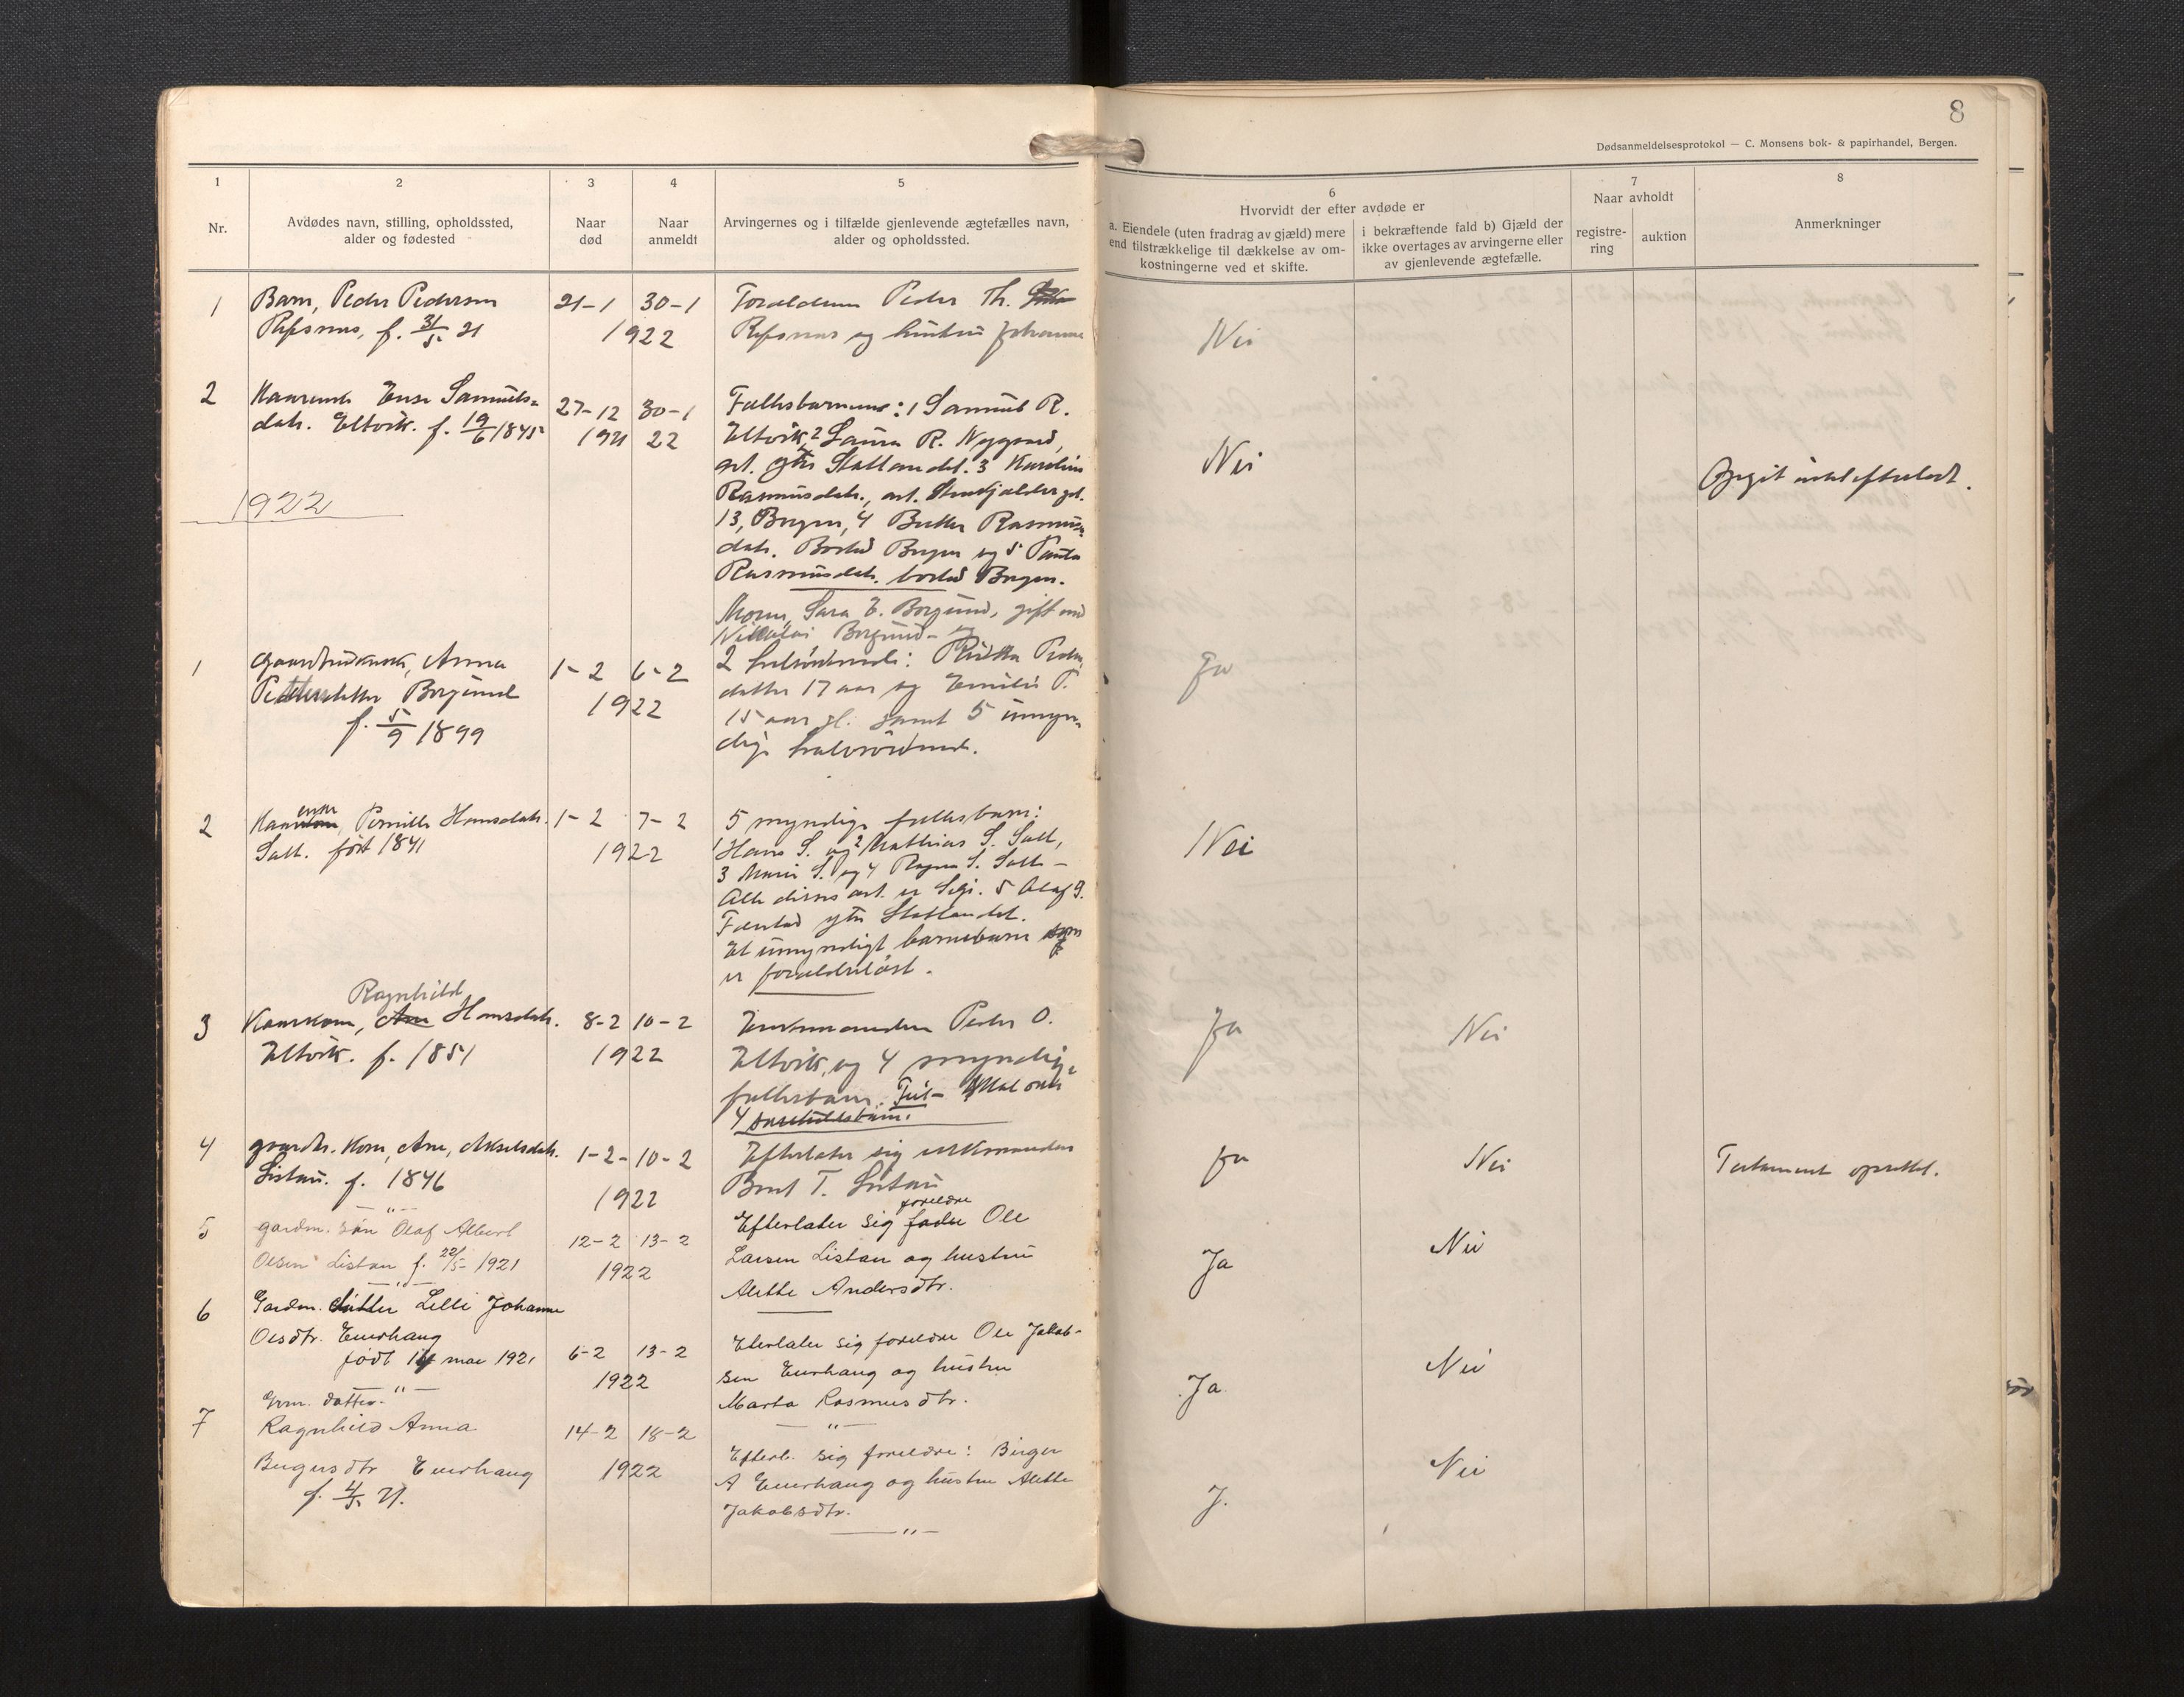 8
Dødsanmeldelsesprotokol — C. Monsens bok- & papirhandel, Bergen.
1
Nr.
2
Avdødes navn, stilling, opholdssted,
alder og fødested
3
Naar
død
4
Naar
anmeldt
5
Arvingernes og i tilfælde gjenlevende ægtefælles navn,
alder og opholdssted.
6
Hvorvidt der efter avdøde er
a. Eiendele (uten fradrag av gjæld) mere
end tilstrækkelige til dækkelse av om-
kostningerne ved et skifte.
i bekræftende fald b) Gjæld der
ikke overtages av arvingerne eller
av gjenlevende ægtefælle.
7
Naar avholdt
registre-
ring
auktion
8
Anmerkninger
1
Barn, Peder Pedersen
Refsnes, f. 31/5 21
21-1 30-1
1922
Forældrene Peder Th.
Refsnes og hustru Johanne
Nei
2
Samuels-
datr. Eltvik. f. 19/6 1845
27-12 30-1
1921 22
Fællesbarnene: 1 Samuel R.
Eltvik, 2 Laura R. Nygaard,
ytre Statlandet. 3 Karoline
Rasmusdatr.,
13, Bergen, 4 Rasmus-
datr. Bosted Bergen og 5
Rasmusdatr. bosted Bergen.
Nei
Opgit intet efterladt.
1922
1
Anna
Borgund
f. 5/9 1899
1-2 6-2
1922
Moren, Sara E. Borgund, gift med
Nikolai Borgund - og
2 helsøskende: Peders
datter 17 aar og Emilie P.
15 aar gl. samt 5 umyn-
dige halvsøskende.
Ja
2
enke
Pernille Hansdatr.
Salt. født 1841
1-2 7-2
1922
5 myndige fællesbarn:
1 Hans S. og 2 Mathias S. Salt,
3 Marie S. og 4 Ragna S. Salt -
Alle disses adr. er Selje. 5 Olaf S.
ytre Statlandet.
Et umyndigt barnebarn som
er forældreløst.
Nei
3
Ragnhild
Kaarkone, Ane Hansdatr.
Eltvik. f. 1851
8-2 10-2
1922
Enkemanden Peder O.
Eltvik, og 4 myndige
fællesbarn.
4 særkuldsbarn.
Ja
Nei
4
gaardbr. kone, Ane, Akselsdatr.
Listau. f. 1846
1-2- 10-2
1922
Efterlater sig enkemanden
Bent T. Listau
Ja
Nei
Testament oprettet.
— " —
5
gardm. søn Olaf Albert
Olsen Listau f. 22/5- 1921
12-2 13-2
1922
foreldre
Efterlater sig fader Ole
Larsen Listau og hustru
Alette Andersdtr.
Ja
Nei
— " —
6
Gardm. datter Lilli Johanne
Olsdtr. Enerhaug
født 14 mai 1921
6-2 13-2
1922
Eterlater sig foreldre Ole Jakob-
sen Enerhaug og hustru
Marta Rasmusdtr.
Ja
Nei
— " —
— " —
7
Grm. datter.
Ragnhild Anna
Birgersdtr Enerhaug
f. 4/5. 21.
14-2 18-2
1922
Efterl. sig foreldre: Birger
A Enerhaug og hustru Alette
Jakobsdtr.
J.
Nei
— " —